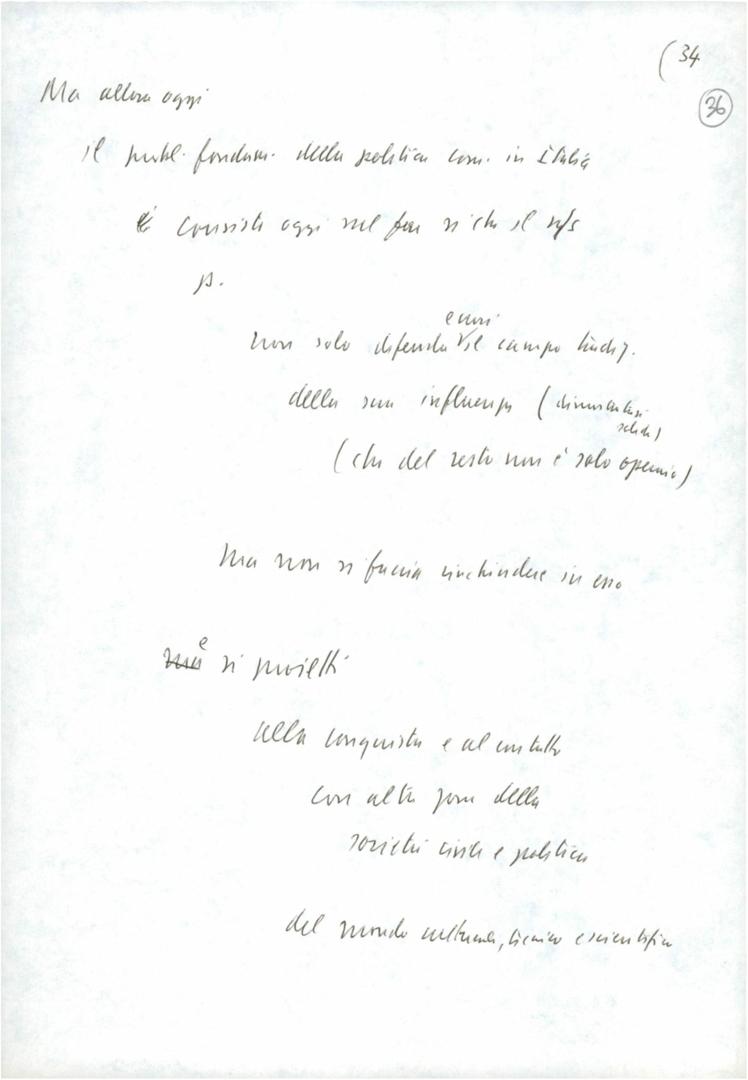 (34
36
Ma allora oggi
il probl. fondam. della politica com. in Italia
consiste oggi nel far sì che il n/s
p.
e curi
non solo difenda il campo tradiz.
della sua influenza (
(che del resto non è solo operaio)
ma non si faccia rinchiudere in esso
e
ma si proietti
alla conquista e al contatto
con altre zone della
società civile e politica
del mondo culturale, tecnico e scientifico